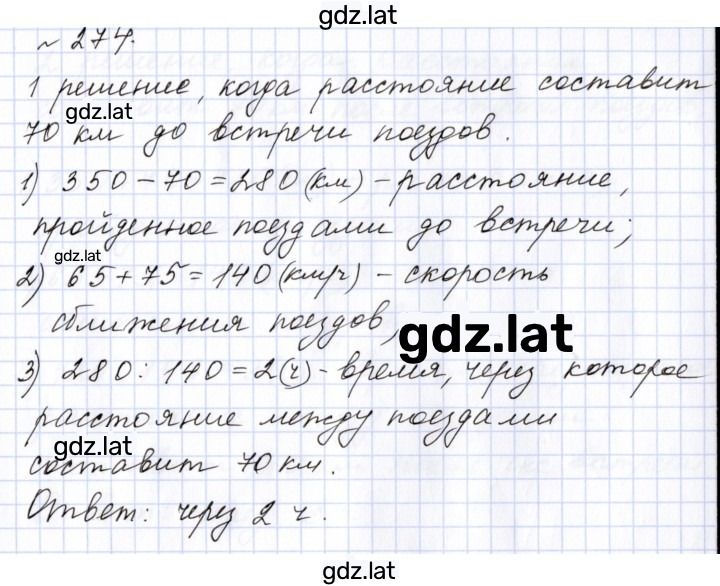 gdz.lat
~ 274.
1 решение, когда расстояние составит
gdz.lat
70 км до встречи поездов.
1) 350 – 70 = 280 (км) – расстояние,
пройденное поездами до встречи;
gdz.lat
2) 65 + 75 = 140 (км/ч) – скорость
сближения поездов,
gdz.lat
3) 280 : 140 = 2 (ч) – время, через которое
расстояние между поездами
gdz.lat
составит 70 км.
Ответ: через 2 ч.
gdz.lat